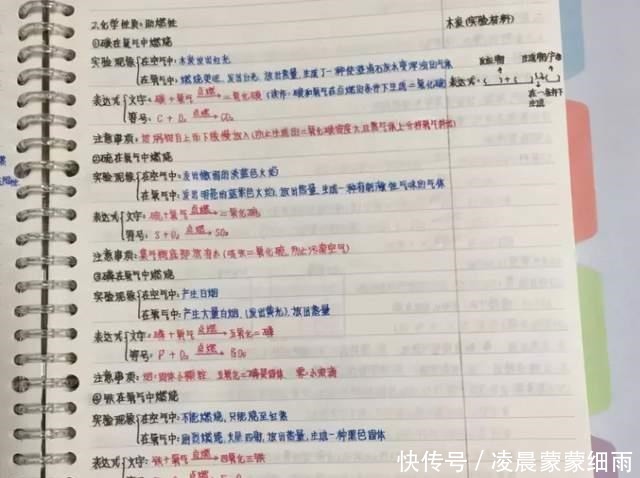 2.化学性质:助燃性
木炭(实验材料)
①碳在氧气中燃烧
实验现象 在空气中:木炭发出红光
在氧气中:燃烧更旺,发出白光,放出热量,生成了一种使澄清石灰水变浑浊的气体
表达式 文字:碳+氧气 点燃→ 二氧化碳(读作:碳和氧气在点燃的条件下生成二氧化碳)
符号:C + O₂ 点燃→ CO₂
表达式:( )+( ) →( )
在一定条件下
生成
注意事项:
②硫在氧气中燃烧
实验现象 在空气中:发出微弱的淡蓝色火焰
在氧气中:发出明亮的蓝紫色火焰,放出热量,生成一种有刺激性气味的气体
表达式 文字:硫+氧气 点燃→ 二氧化硫
符号:S + O₂ 点燃→ SO₂
注意事项:氧气瓶底部放有水(吸收二氧化硫,防止污染空气)
③磷在氧气中燃烧
实验现象 在空气中:产生白烟
在氧气中:产生大量白烟,(发出黄光),放出热量
表达式 文字:磷+氧气 点燃→ 五氧化二磷
符号:P + O₂ 点燃→ P₂O₅
注意事项:烟:固体小颗粒 五氧化二磷是固体 雾:小液滴
④铁在氧气中燃烧
实验现象 在空气中:不能燃烧,只能烧至红热
在氧气中:剧烈燃烧,火星四射,放出热量,生成一种黑色固体
表达式 文字:铁+氧气 点燃→ 四氧化三铁
快传号/凌晨蒙蒙细雨